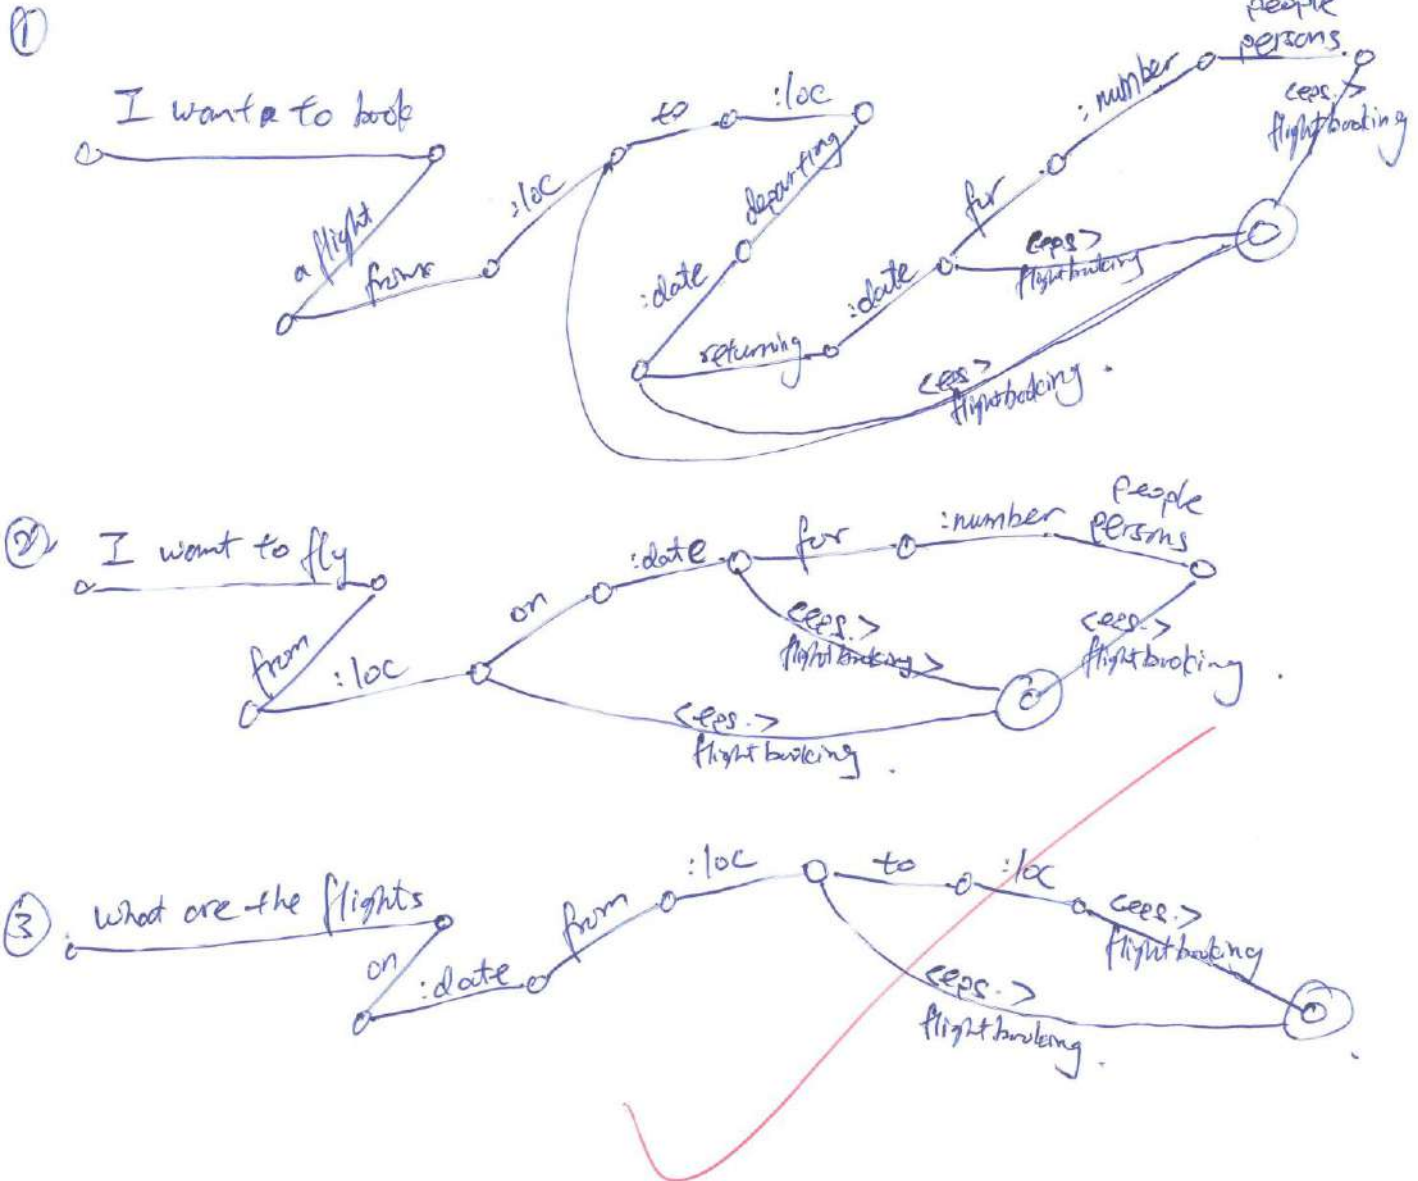 ①
I want to book
a flight
from
:loc
to
:loc
departing
:date
returning
:date
for
:number
people
persons
<eps.>
flightbooking
<eps>
flightbooking
<eps>
flightbooking.
② I want to fly
from
:loc
on
:date
for
:number
people
persons
<eps.>
flightbooking
<eps.>
flightbooking>
<eps.>
flightbooking.
③ What are the flights
on
:date
from
:loc
to
:loc
<eps.>
flightbooking
<eps.>
flightbooking.